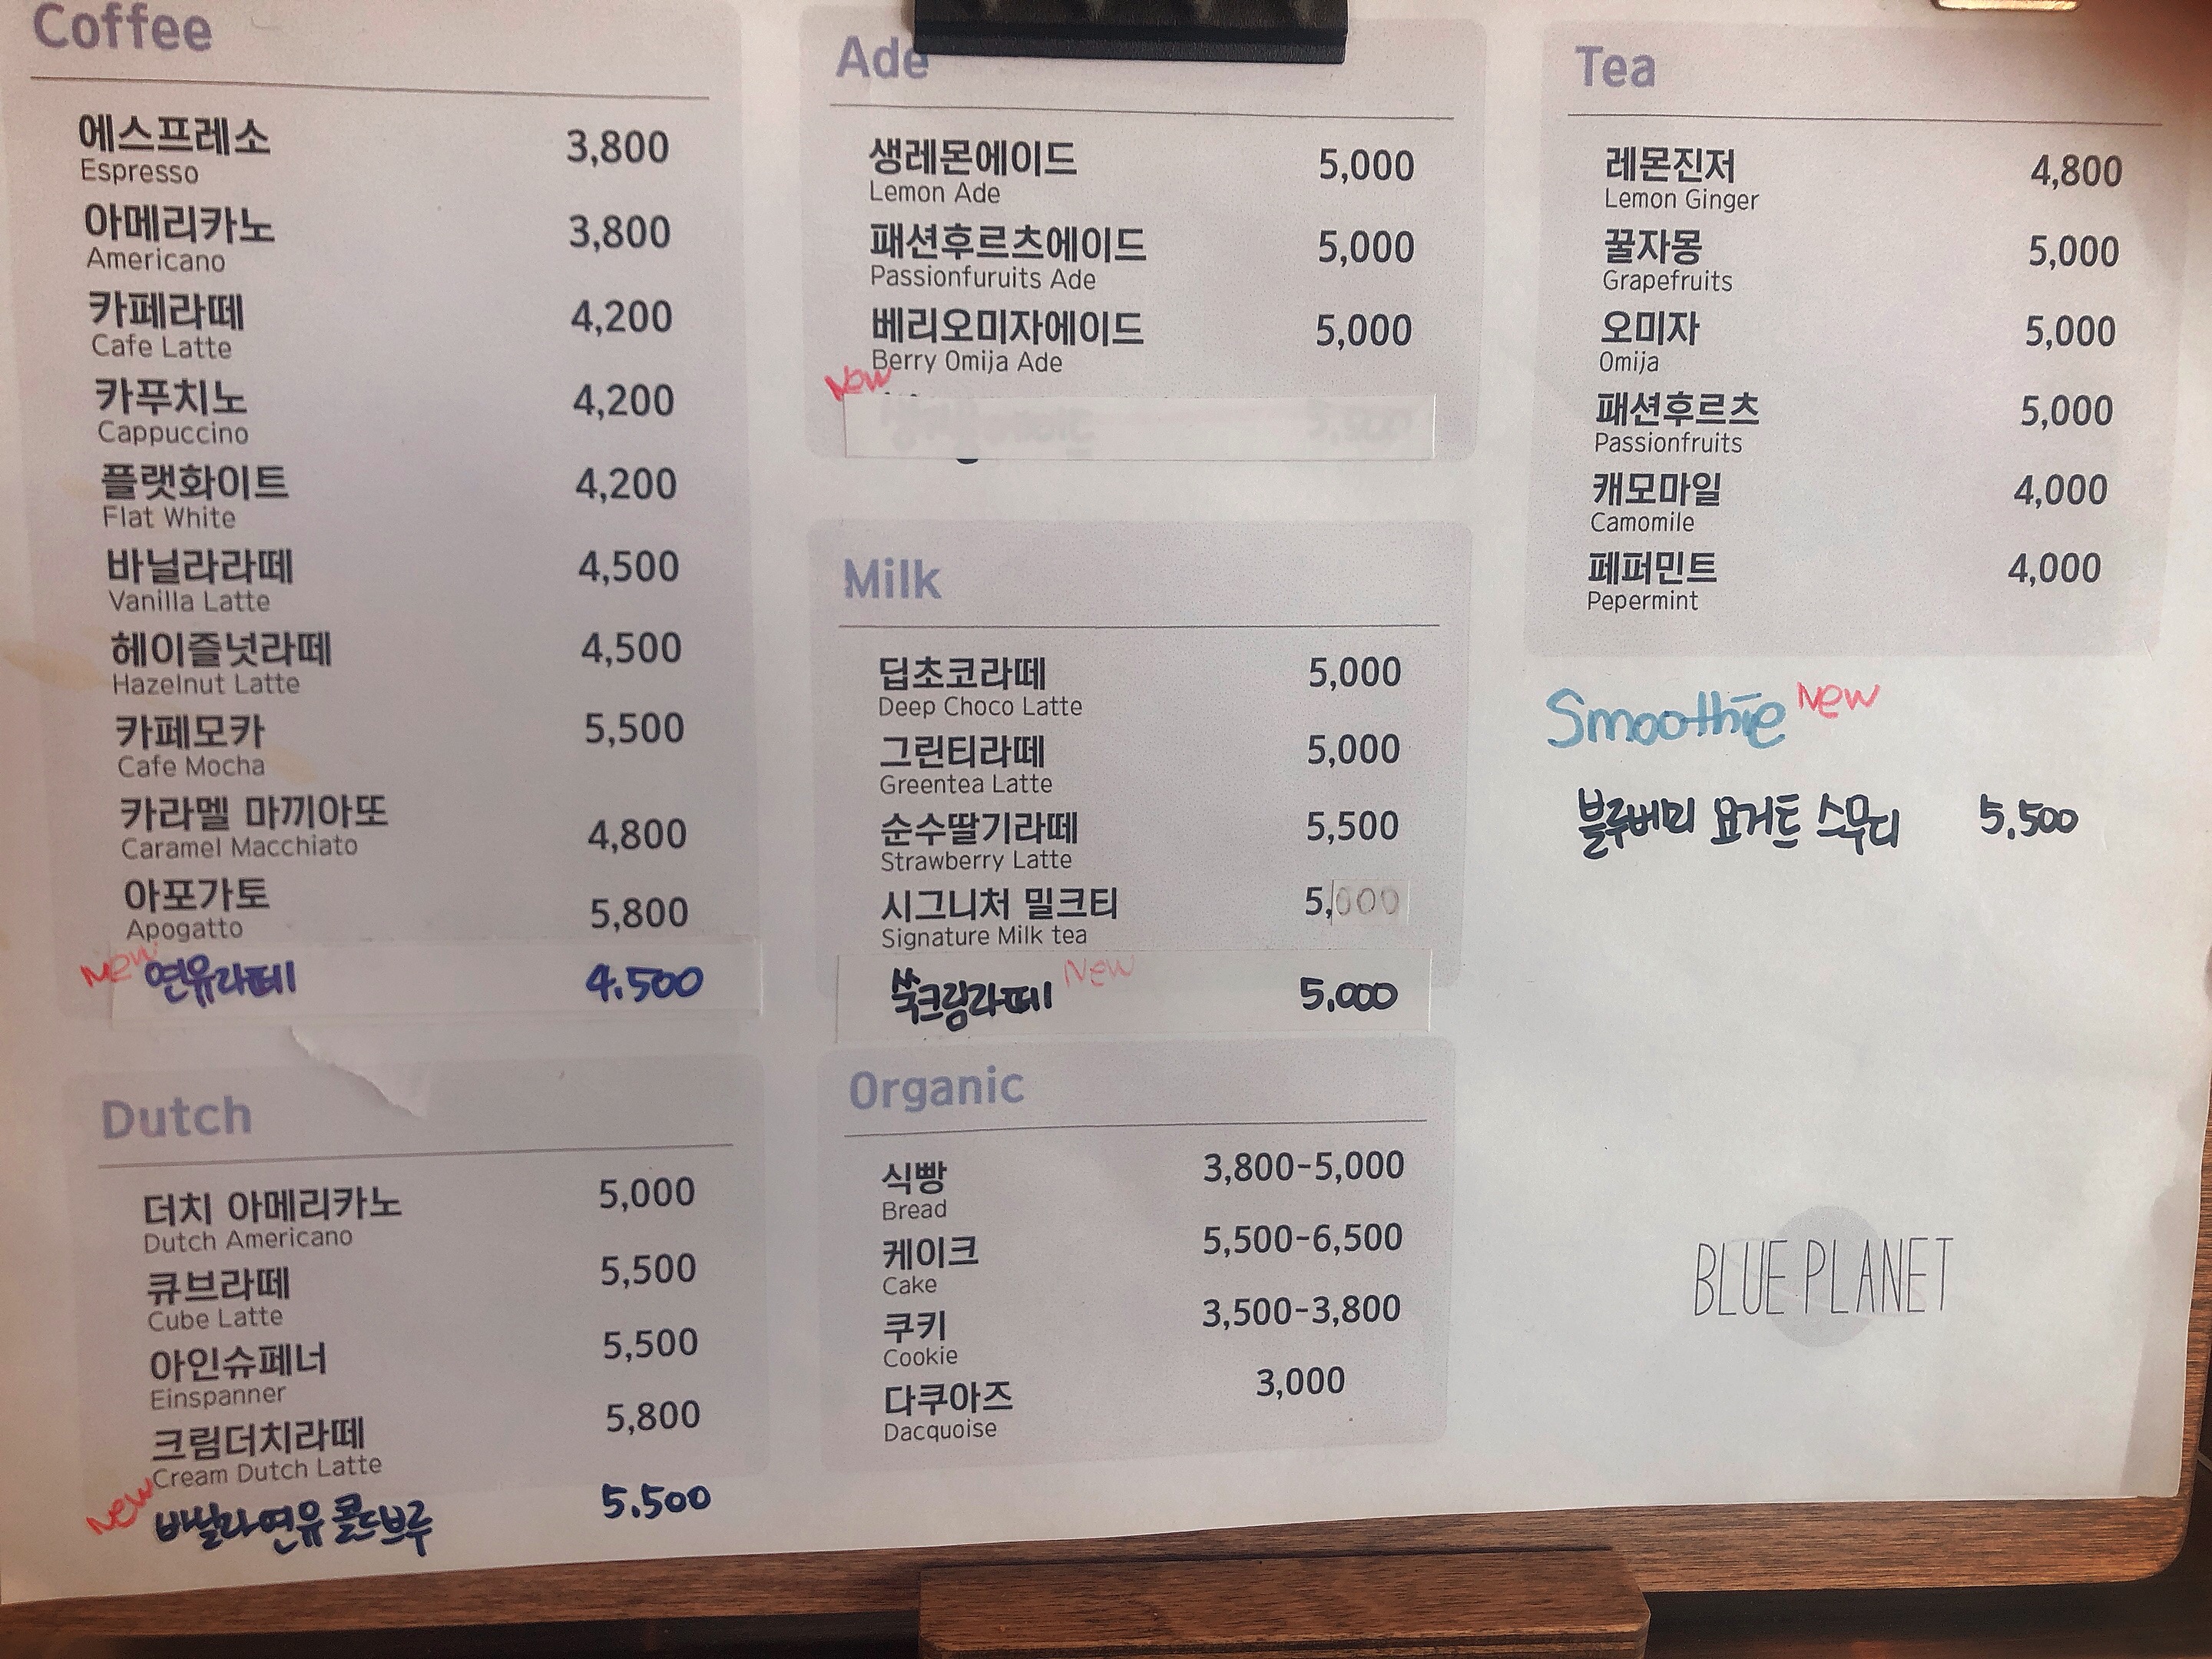 Coffee
에스프레소 3,800
Espresso
아메리카노 3,800
Americano
카페라떼 4,200
Cafe Latte
카푸치노 4,200
Cappuccino
플랫화이트 4,200
Flat White
바닐라라떼 4,500
Vanilla Latte
헤이즐넛라떼 4,500
Hazelnut Latte
카페모카 5,500
Cafe Mocha
카라멜 마끼아또 4,800
Caramel Macchiato
아포가토 5,800
Apogatto
New 연유라떼 4.500
Dutch
더치 아메리카노 5,000
Dutch Americano
큐브라떼 5,500
Cube Latte
아인슈페너 5,500
Einspanner
크림더치라떼 5,800
Cream Dutch Latte
New 바닐라연유 콜드브루 5.500
Ade
생레몬에이드 5,000
Lemon Ade
패션후르츠에이드 5,000
Passionfuruits Ade
베리오미자에이드 5,000
Berry Omija Ade
New
Milk
딥초코라떼 5,000
Deep Choco Latte
그린티라떼 5,000
Greentea Latte
순수딸기라떼 5,500
Strawberry Latte
시그니처 밀크티 5,000
Signature Milk tea
쑥크림라떼 New 5.000
Organic
식빵 3,800-5,000
Bread
케이크 5,500-6,500
Cake
쿠키 3,500-3,800
Cookie
다쿠아즈 3,000
Dacquoise
Tea
레몬진저 4,800
Lemon Ginger
꿀자몽 5,000
Grapefruits
오미자 5,000
Omija
패션후르츠 5,000
Passionfruits
캐모마일 4,000
Camomile
페퍼민트 4,000
Pepermint
Smoothie New
블루베리 요거트 스무디 5.500
BLUE PLANET